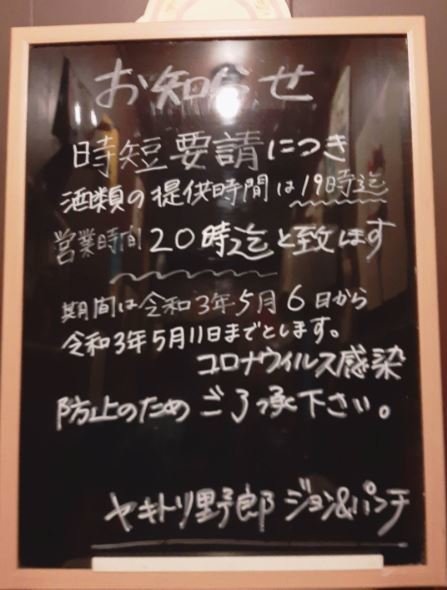 お知らせ
時短要請につき
酒類の提供時間は19時迄
営業時間20時迄と致します
期間は令和3年5月6日から
令和3年5月11日までとします。
コロナウイルス感染
防止のためご了承下さい。
ヤキトリ野郎 ジョン&パンチ